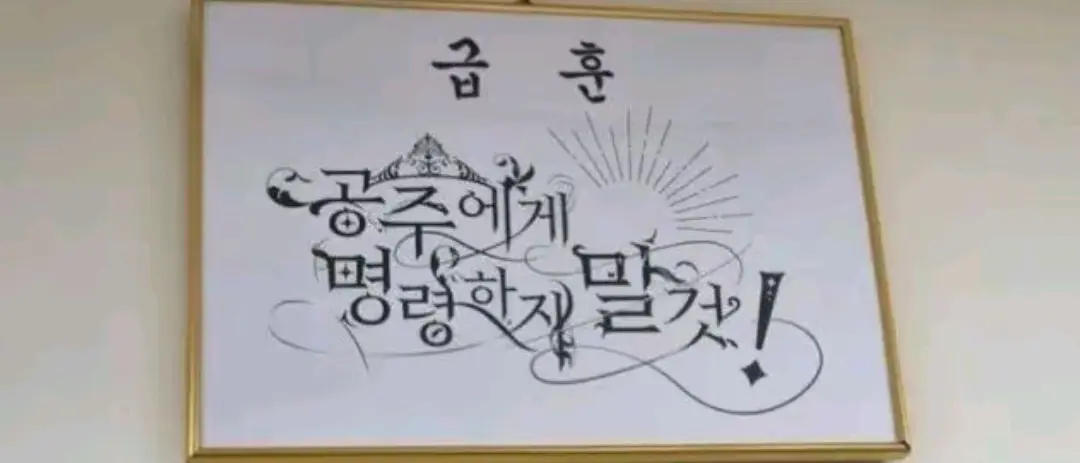 급 훈
공주에게
명령하지 말것!